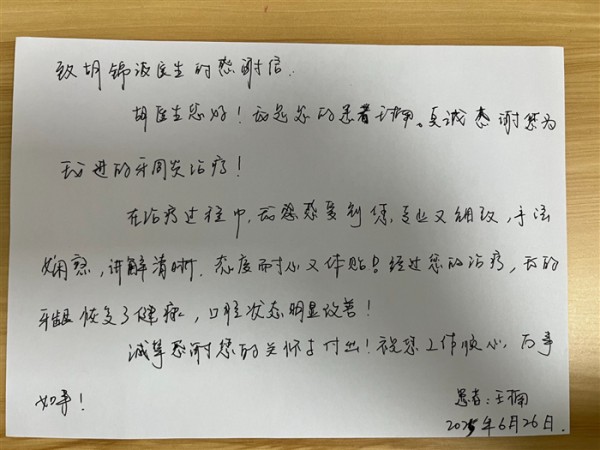 致胡锦波医生的感谢信.
胡医生您好！我是您的患者。真诚感谢您为
我进的牙周炎治疗！
在治疗过程中,我感受到您,专业又细致,手法
娴熟,讲解清晰.态度耐心又体贴！经过您的治疗,我的
牙龈恢复了健康,口腔状态明显改善！
诚挚感谢您的关怀与付出！祝您工作顺心,万事
如意！
患者:王
2025年6月26日.